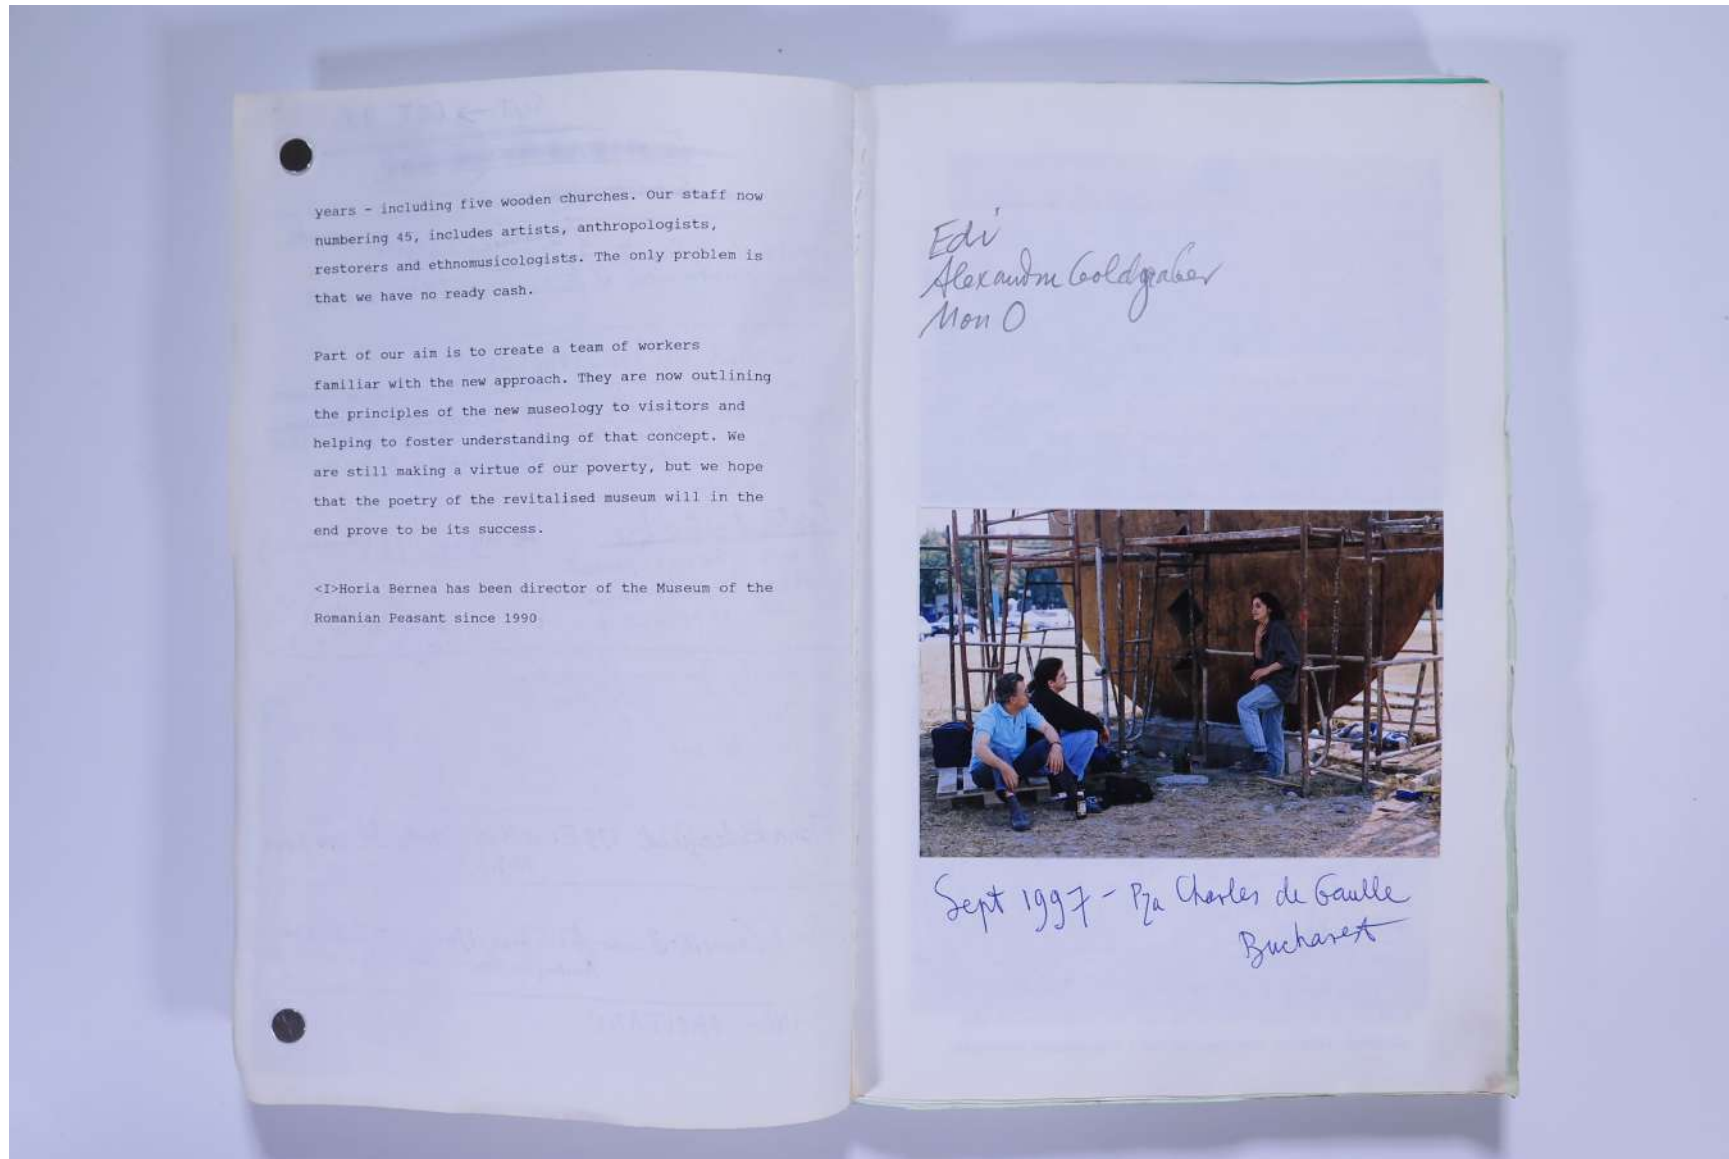 years - including five wooden churches. Our staff now
numbering 45, includes artists, anthropologists,
restorers and ethnomusicologists. The only problem is
that we have no ready cash.
Part of our aim is to create a team of workers
familiar with the new approach. They are now outlining
the principles of the new museology to visitors and
helping to foster understanding of that concept. We
are still making a virtue of our poverty, but we hope
that the poetry of the revitalised museum will in the
end prove to be its success.
<I>Horia Bernea has been director of the Museum of the
Romanian Peasant since 1990
Edi
Goldgraber
Sept 1997 - Pza Charles de Gaulle
Bucharest